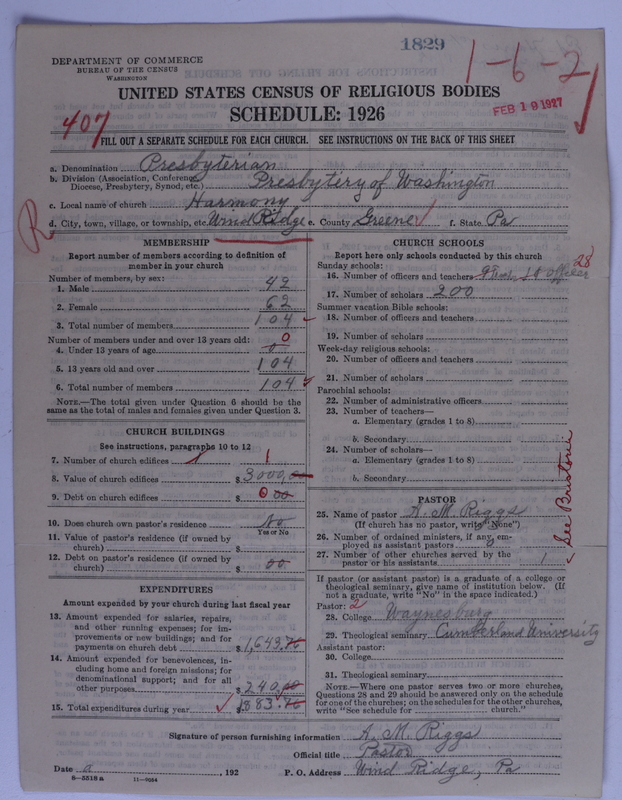 1829
DEPARTMENT OF COMMERCE
BUREAU OF THE CENSUS
WASHINGTON
1-6-2
UNITED STATES CENSUS OF RELIGIOUS BODIES
SCHEDULE: 1926
FEB 19 1927
407
FILL OUT A SEPARATE SCHEDULE FOR EACH CHURCH. SEE INSTRUCTIONS ON THE BACK OF THIS SHEET
a. Denomination Presbyterian
b. Division (Association, Conference, Diocese, Presbytery, Synod, etc.) Presbytery of Washington
c. Local name of church Harmony
d. City, town, village, or township, etc. Wind Ridge e. County Greene f. State Pa
R
MEMBERSHIP
Report number of members according to definition of
member in your church
Number of members, by sex:
1. Male 42
2. Female 62
3. Total number of members 104
Number of members under and over 13 years old:
4. Under 13 years of age 0 0
5. 13 years old and over 104
6. Total number of members 104
NOTE.—The total given under Question 6 should be
same as the total of males and females given under Question 3.
CHURCH BUILDINGS
See instructions, paragraphs 10 to 12
7. Number of church edifices 1 1
8. Value of church edifices $ 3000,00
9. Debt on church edifices $ 0 00
10. Does church own pastor's residence No
Yes or No
11. Value of pastor's residence (if owned by
church) $
12. Debt on pastor's residence (if owned by
church) $ 00
EXPENDITURES
Amount expended by your church during last fiscal year
13. Amount expended for salaries, repairs,
and other running expenses; for im-
provements or new buildings; and for
payments on church debt $ 1,643.76
14. Amount expended for benevolences, in-
cluding home and foreign missions; for
denominational support; and for all
other purposes $ 240.00
15. Total expenditures during year $ 1883.76
CHURCH SCHOOLS
Report here only schools conducted by this church
Sunday schools:
28
16. Number of officers and teachers 10 officers
17. Number of scholars 200
Summer vacation Bible schools:
18. Number of officers and teachers
19. Number of scholars
Week-day religious schools:
20. Number of officers and teachers
21. Number of scholars
Parochial schools:
22. Number of administrative officers
23. Number of teachers—
a. Elementary (grades 1 to 8)
b. Secondary
24. Number of scholars—
a. Elementary (grades 1 to 8)
b. Secondary
PASTOR
25. Name of pastor A. M. Riggs
(If church has no pastor, write "None")
26. Number of ordained ministers, if any, em-
ployed as assistant pastors
27. Number of other churches served by the
pastor or his assistants 1
See
If pastor (or assistant pastor) is a graduate of a college or
theological seminary, give name of institution below. (If
not a graduate, write "No" in the space indicated.)
Pastor: 2
28. College Waynesburg
29. Theological seminary Cumberland University
Assistant pastor:
30. College
31. Theological seminary
NOTE.—Where one pastor serves two or more churches,
Questions 28 and 29 should be answered only on the schedule
for one of the churches; on the schedules for the other churches,
write "See schedule for church."
Signature of person furnishing information A. M. Riggs
Official title Pastor
Date a , 192 P. O. Address Wind Ridge, Pa
8-5518 a 11-9054